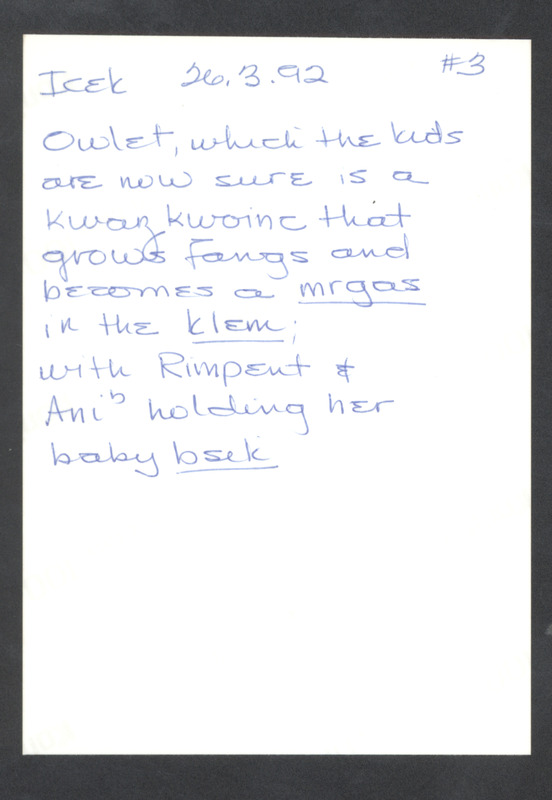 Icek 26.3.92 #3
Owlet, which the kids
are now sure is a
kwaŋ kwoinc that
grows fangs and
becomes a mrgas
in the klem;
with Rimpent &
Ani ᵇ holding her
baby bsek